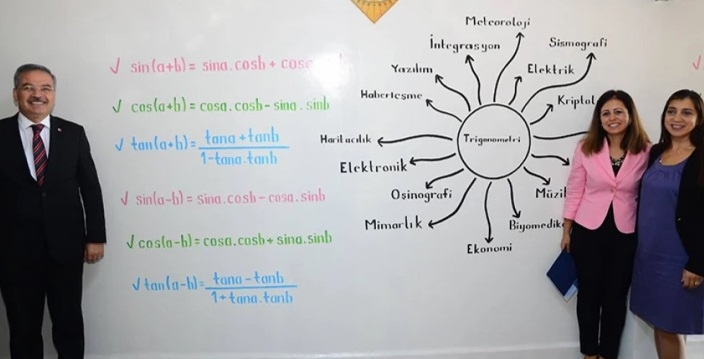 √ sin(a+b) = sina.cosb + cosa
√ cos(a+b) = cosa.cosb - sina.sinb
√ tan(a+b) = tana + tanb
1 - tana.tanb
√ sin(a-b) = sina.cosb - cosa.sinb
√ cos(a-b) = cosa.cosb + sina.sinb
√ tan(a-b) = tana - tanb
1 + tana.tanb
Meteoroloji
İntegrasyon
Sismografi
Yazılım
Elektrik
Haberleşme
Kriptol
Haritacılık
Trigonometri
Elektronik
Oşinografi
Müzi
Mimarlık
Biyomedik
Ekonomi